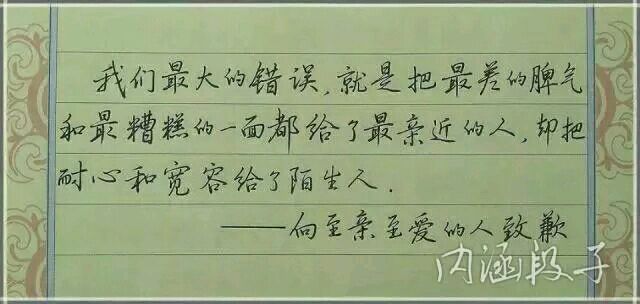 我们最大的错误,就是把最差的脾气
和最糟糕的一面都给了最亲近的人,却把
耐心和宽容给了陌生人.
——向至亲至爱的人致歉
内涵段子